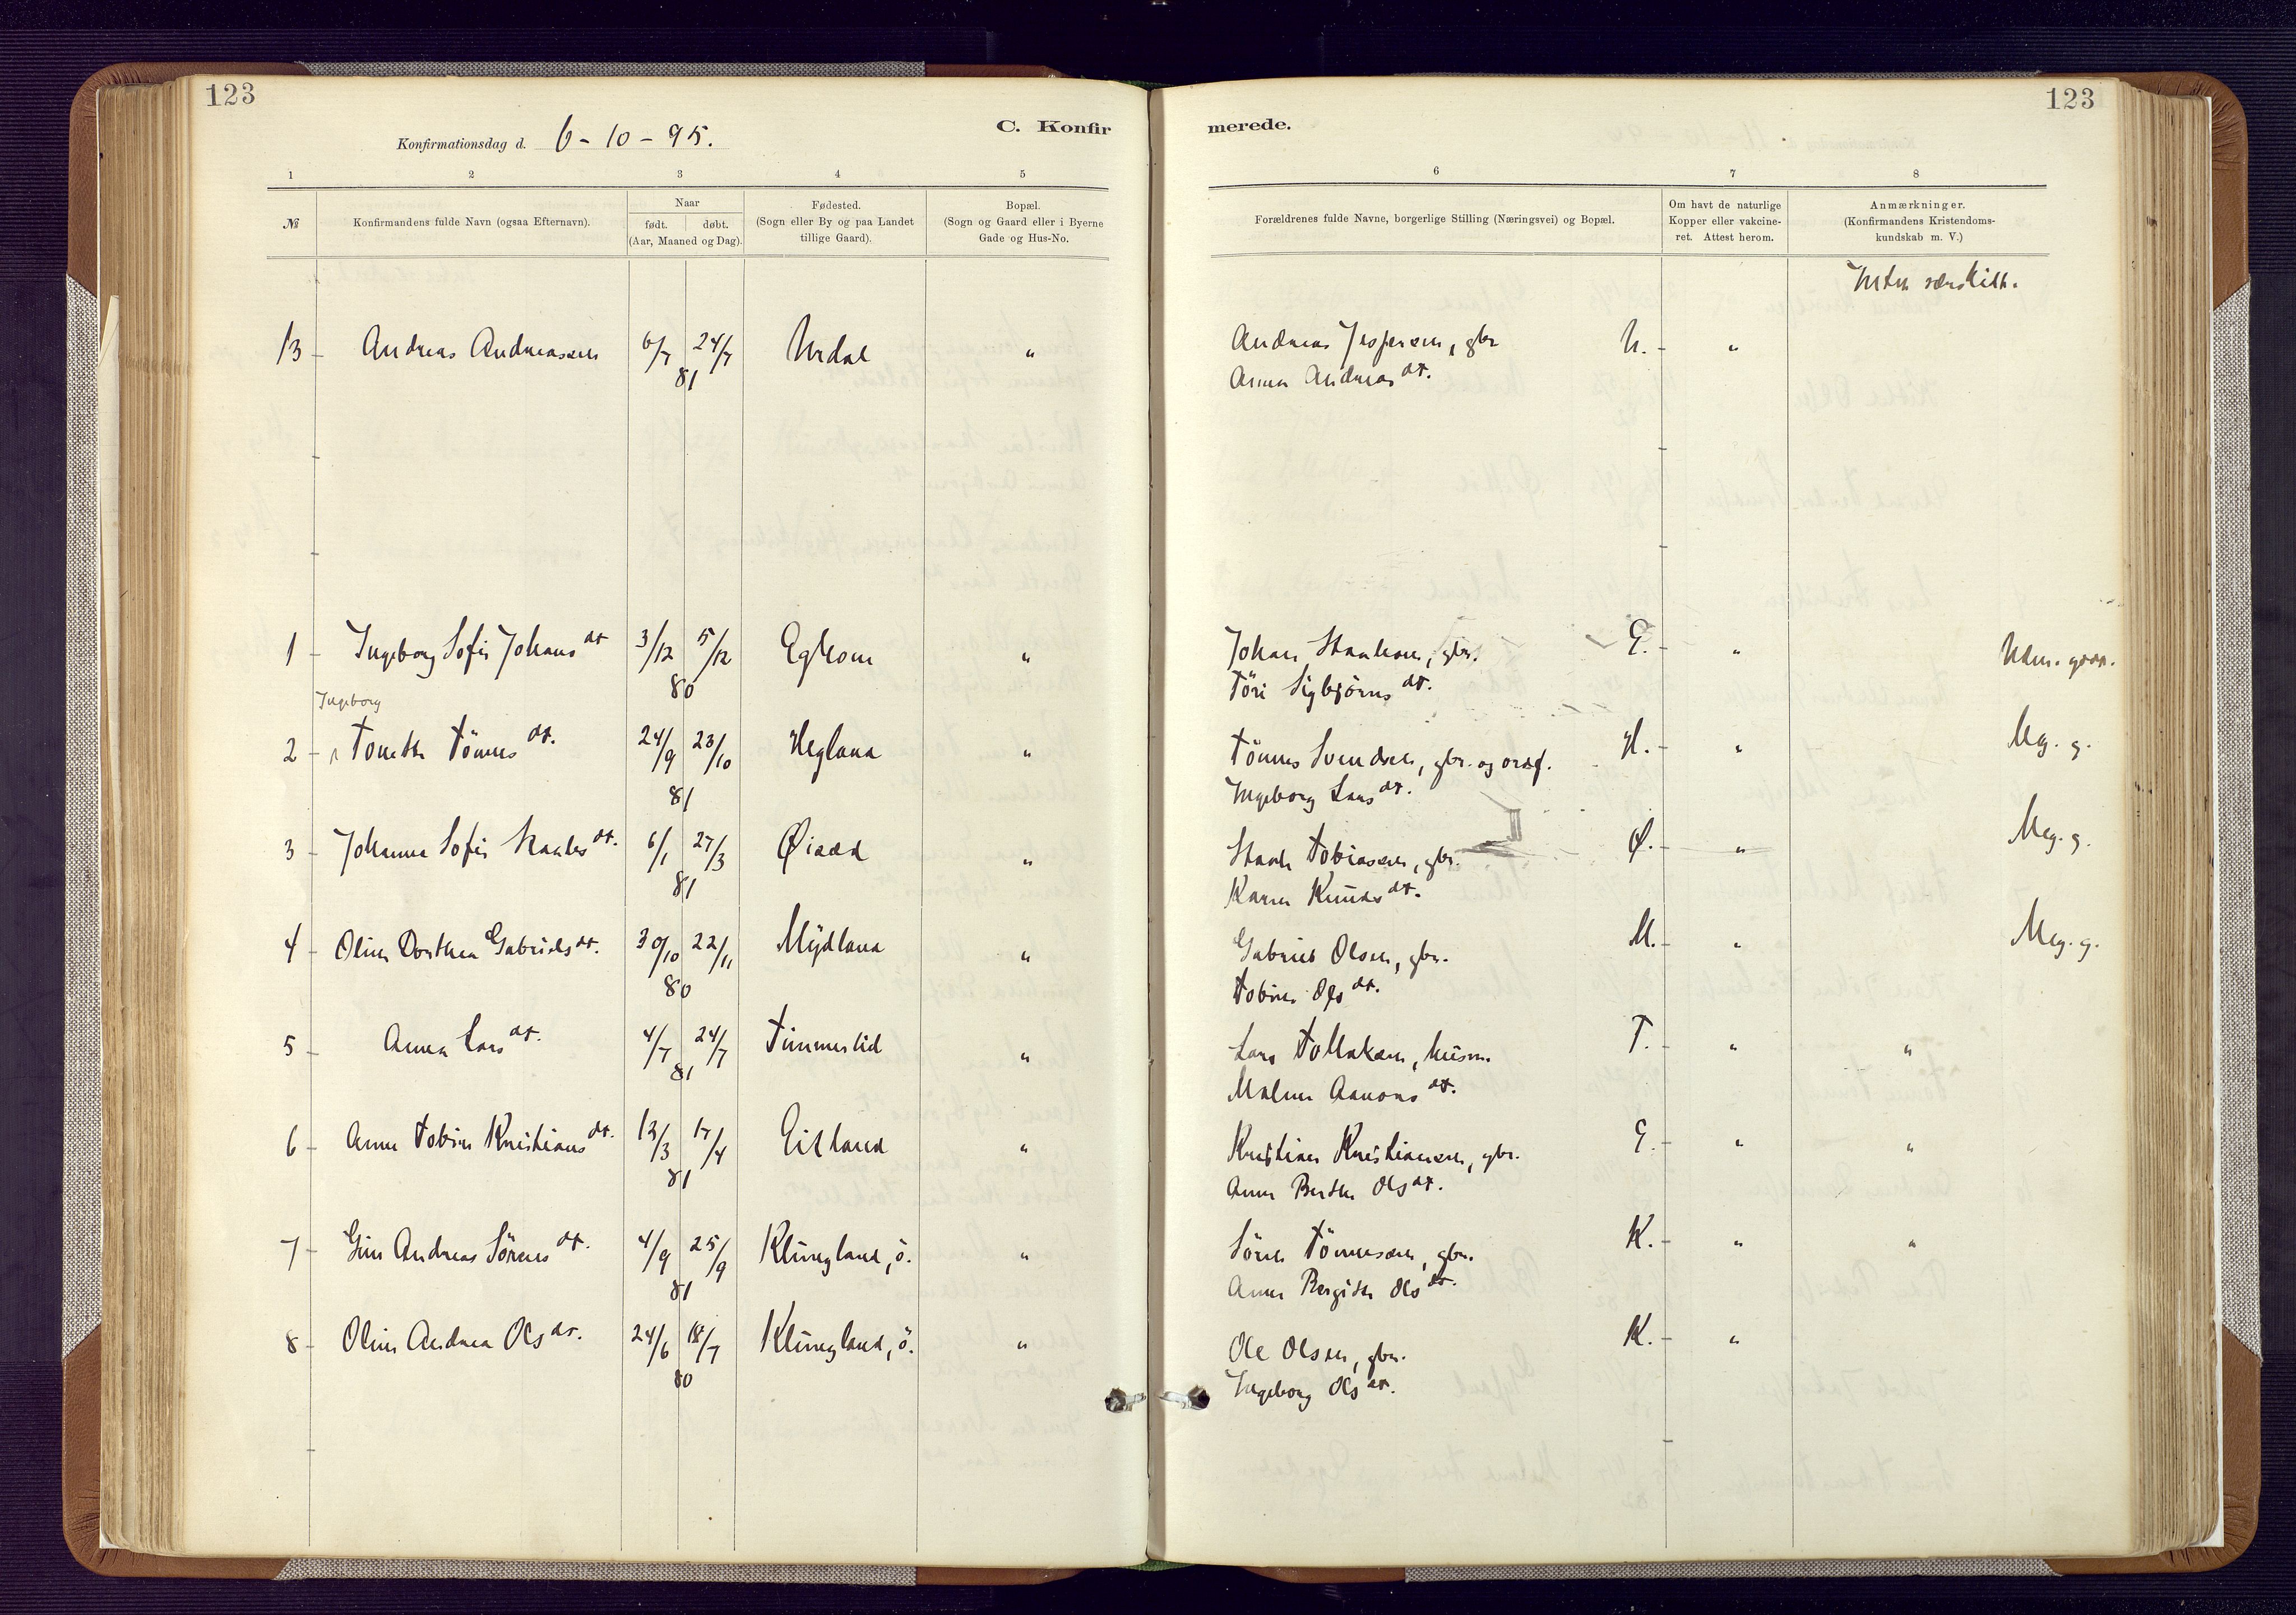 123
123
Konfirmationsdag d. 6 - 10 - 95.
C. Konfir
merede.
1 2 3 4 5
6 7 8
№
Konfirmandens fulde Navn (ogsaa Efternavn).
Naar
født. døbt.
(Aar, Maaned og Dag).
Fødested.
(Sogn eller By og paa Landet
tillige Gaard).
Bopæl.
(Sogn og Gaard eller i Byerne
Gade og Hus-No.
Forældrenes fulde Navne, borgerlige Stilling (Næringsvei) og Bopæl.
Om havt de naturlige
Kopper eller vakcine-
ret. Attest herom.
Anmærkninger.
(Konfirmandens Kristendoms-
kundskab m. V.)
13 - Andreas Andreassen 6/7 24/7 Urdal " Andreas Jespersen, gbr U. - "
81 Anna Andreas dt.
1 - Ingeborg Sofie Johans dt 3/12 5/12 " Johan , gbr. E. - "
80 Töri Sigbjörns dt.
Ingeborg
2 - Tonette Tönnes dt. 24/9 23/10 Hegland " Tönnes Svendsen, gbr. og H. - " Meg. g.
81 Ingeborg Lars dt.
3 - Johanna Sofie dt. 6/1 27/3 Øisæd " Tobiassen, gbr. Ø. - " Meg. g.
81 Karen Knuds dt.
4 - Oline Dorthea Gabriels dt. 30/10 22/11 Mydland " Gabriel Olsen, gbr. M. - " Meg. g.
80 Tobine Ols dt.
5 - Anna Lars dt. 4/7 24/7 Timmerlid " Lars Tollaksen, husm. T. - " "
81 Malene Aanons dt.
6 - Anne Tobine Kristians dt. 13/3 17/4 Eitland " Kristian Kristiansen, gbr. E. - " "
81 Anne Berthe Ols dt.
7 - Gine Andreas Sörens dt. 4/9 25/9 Klungland, ö. " Sören Tönnessen, gbr. K. - " "
81 Anne Bergitte Ols dt.
8 - Oline Andrea Ols dt. 24/6 18/7 Klungland, ö. " Ole Olsen, gbr. K. - "
80 Ingeborg Ols dt.